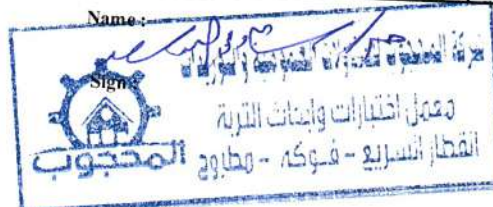 Name :
Sign
شركة المحجوب للمقاولات العمومية والتوريدات
معمل اختبارات وابحاث التربة
القطار السريع - فوكه - مطروح
المحجوب